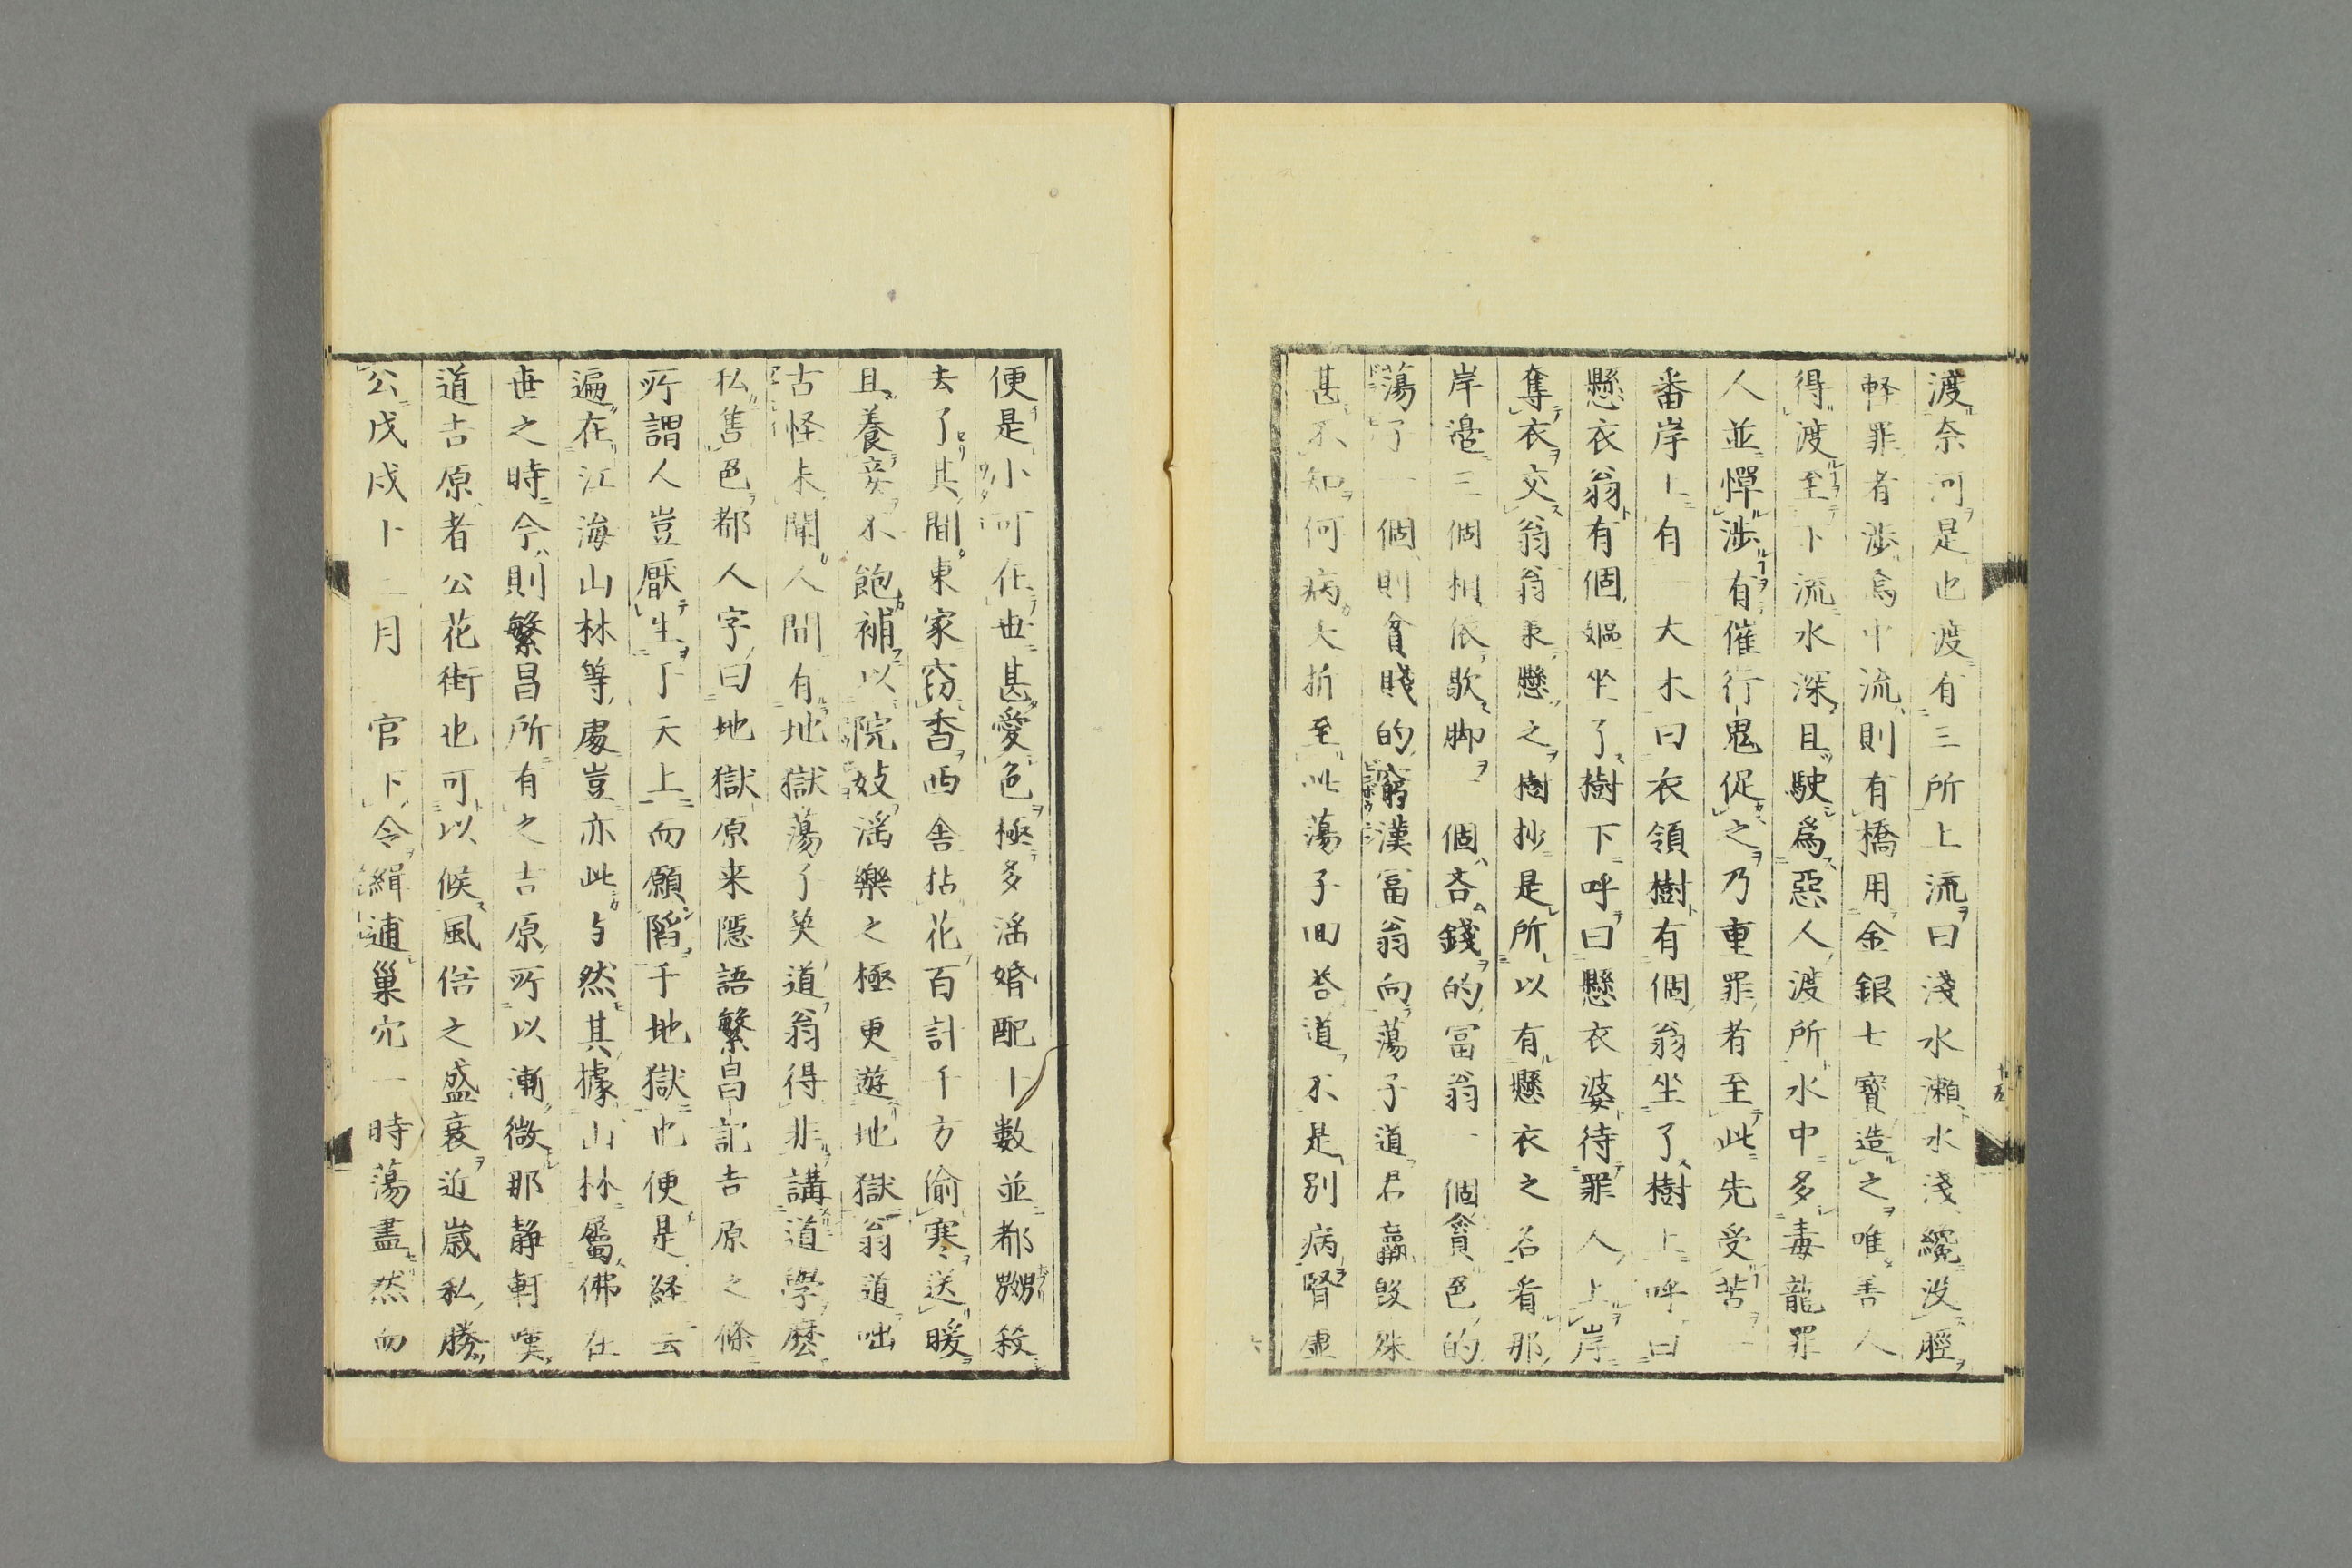 渡奈河是也渡有三所上流曰淺水瀨水淺纔没脛
軽罪者渉焉中流則有橋用金銀七寳造之唯善人
得渡至下流水深且駛爲惡人渡所水中多毒龍罪
人並憚渉有催行鬼促之乃重罪者至此先受苦一
番岸上有一大木曰衣領樹有個翁坐了樹上呼曰
懸衣翁有個嫗坐了樹下呼曰懸衣婆待罪人上岸
奪衣交翁翁乗懸之樹抄是所以有懸衣之名看那
岸邉三個相依歇脚一個吝錢的冨翁一個貪色的
蕩子一個則貧賤的窮漢冨翁向蕩子道君羸毀殊
甚不知何病夭折至此蕩子囬答道不是別病腎虚
便是小可在世甚愛色極多滛婚配十數並都嬲殺
去了其間東家窃香西舎拈花百計千方偷寒送暖
且養妾不飽補以院妓滛樂之極更遊地獄翁道咄
古怪未聞人間有地獄蕩子笑道翁得非講道學麽
私售色都人字曰地獄原来隱語繁昌記吉原之條
所謂人豈厭生于天上而願陷于地獄也便是経云
遍在江海山林等處豈亦此与然其據山林屬佛在
世之時今則繁昌所有之吉原所以漸微那静軒嘆
道吉原者公花街也可以候風俗之盛衰近歳私勝
公戊戌十二月　官下令緝逋巢穴一時蕩盡然而
十五